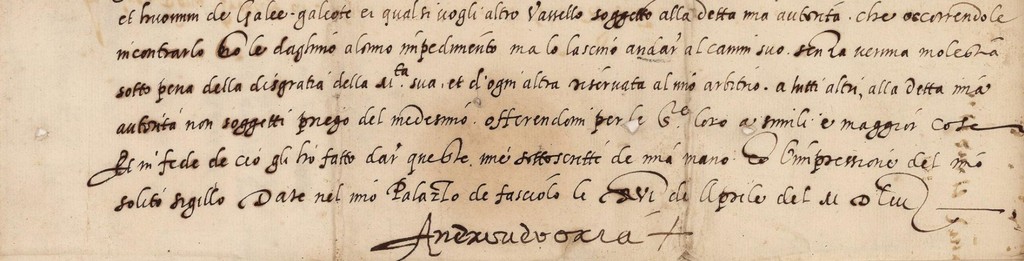 et huomini de Galee, galeote et qualsivogli altro Vassello soggetto alla detta mia autorita. che occorrendole
incontrarlo no le daghino alcuno impedimento ma lo lascino andar al camin suo. senza veruna molestia
sotto pena della disgratia della M.ta sua, et d'ogni altra riservata al mio arbitrio. a tutti altri, alla detta mia
autorita non soggetti priego del medesimo. offerendomi per le S.rie loro a simili e maggior cose
Et in fede de cio gli ho fatto dar queste, mie sottoscritte de mia mano co l'impressione del mio
solito sigillo Date nel mio Palazzo de fasciolo li XVI de Aprile del M D
Andreadoria +